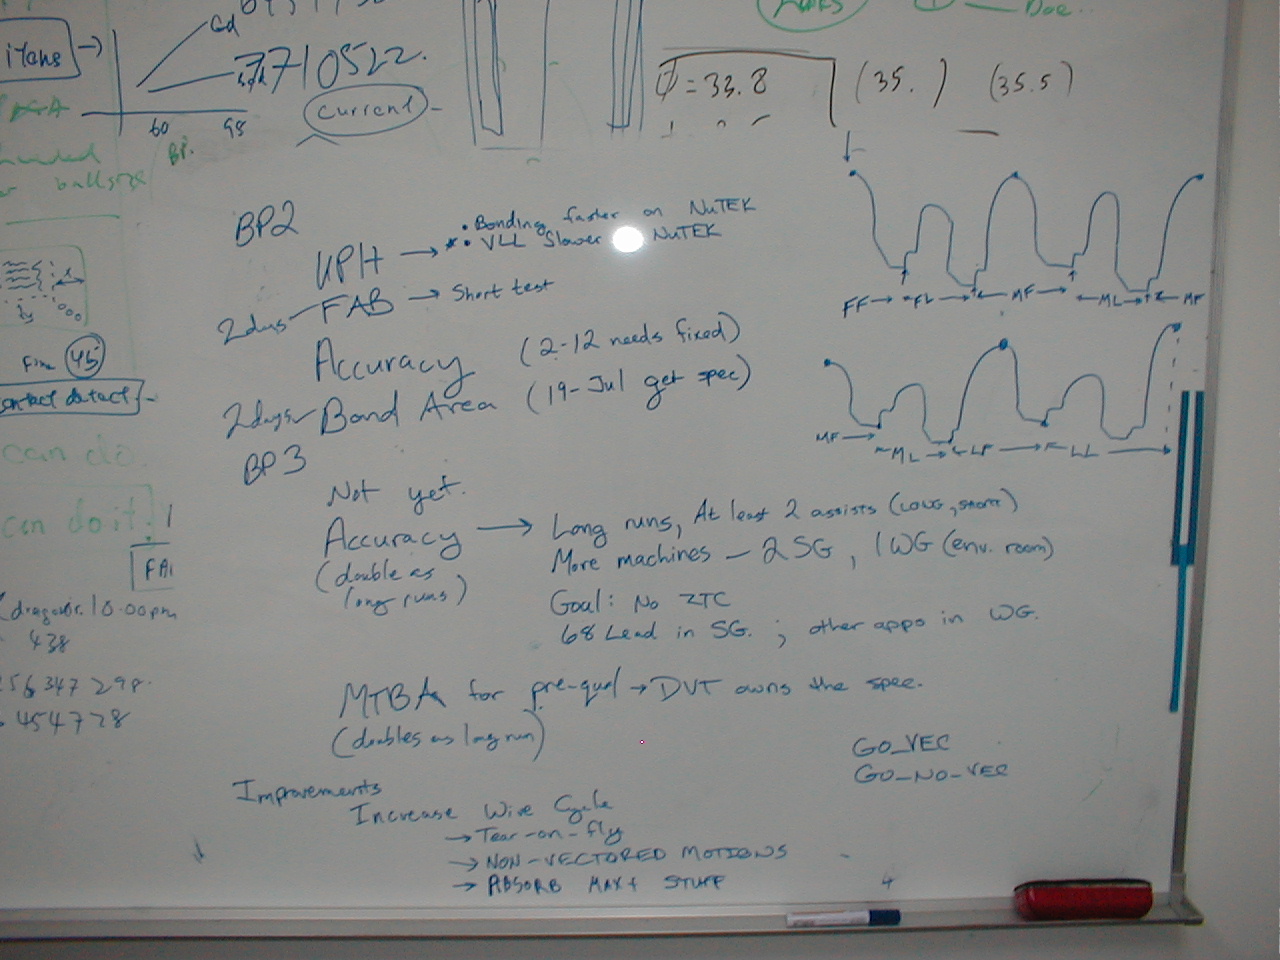 Cd
7710522.
items
current
60 98
BP.
ballsize
Ø = 33.8 (35. ) (35.5)
BP2
UPH → • Bonding faster on NuTEK
* • VLL Slower NuTEK
2days FAB → Short test
Accuracy (2-12 needs fixed)
2days Bond Area (19-Jul get spec)
BP3
Not yet.
Accuracy → Long runs, At least 2 assists (LOWG, short)
(double as long runs)
More machines - 2 SG, 1 WG (env. room)
Goal: No ZTC
68 Lead in SG. ; other apps in WG.
MTBA for pre-qual → DVT owns the spec.
(doubles as long run)
GO_VEC
GO_NO_VEC
Improvements
Increase Wire Cycle
→ Tear-on-fly
→ NON-VECTORED MOTIONS
→ ABSORB MAX+ STUFF
4
FF → FL → MF → ML → MF
MF → ML → LF → LL →
45
contact detect
can do
can do it.
FA
10.00pm
438
56 347 298.
454728